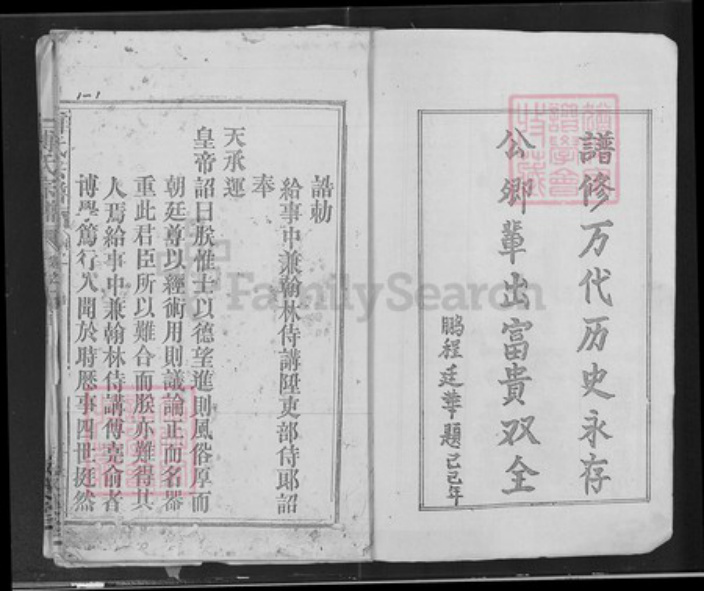 譜修万代历史永存
公卿辈出富貴双全
鵬程廷華題己巳年
誥勅
給事中兼翰林侍講陞吏部侍郎詔
奉
天承運
皇帝詔曰朕惟士以德望進則風俗厚而
朝廷尊以經術用則議論正而名器
重此君臣所以難合而朕亦難得其
人焉給事中兼翰林侍講傅堯俞者
博學篤行久聞於時歷事四世挺然
1-1
FamilySearch